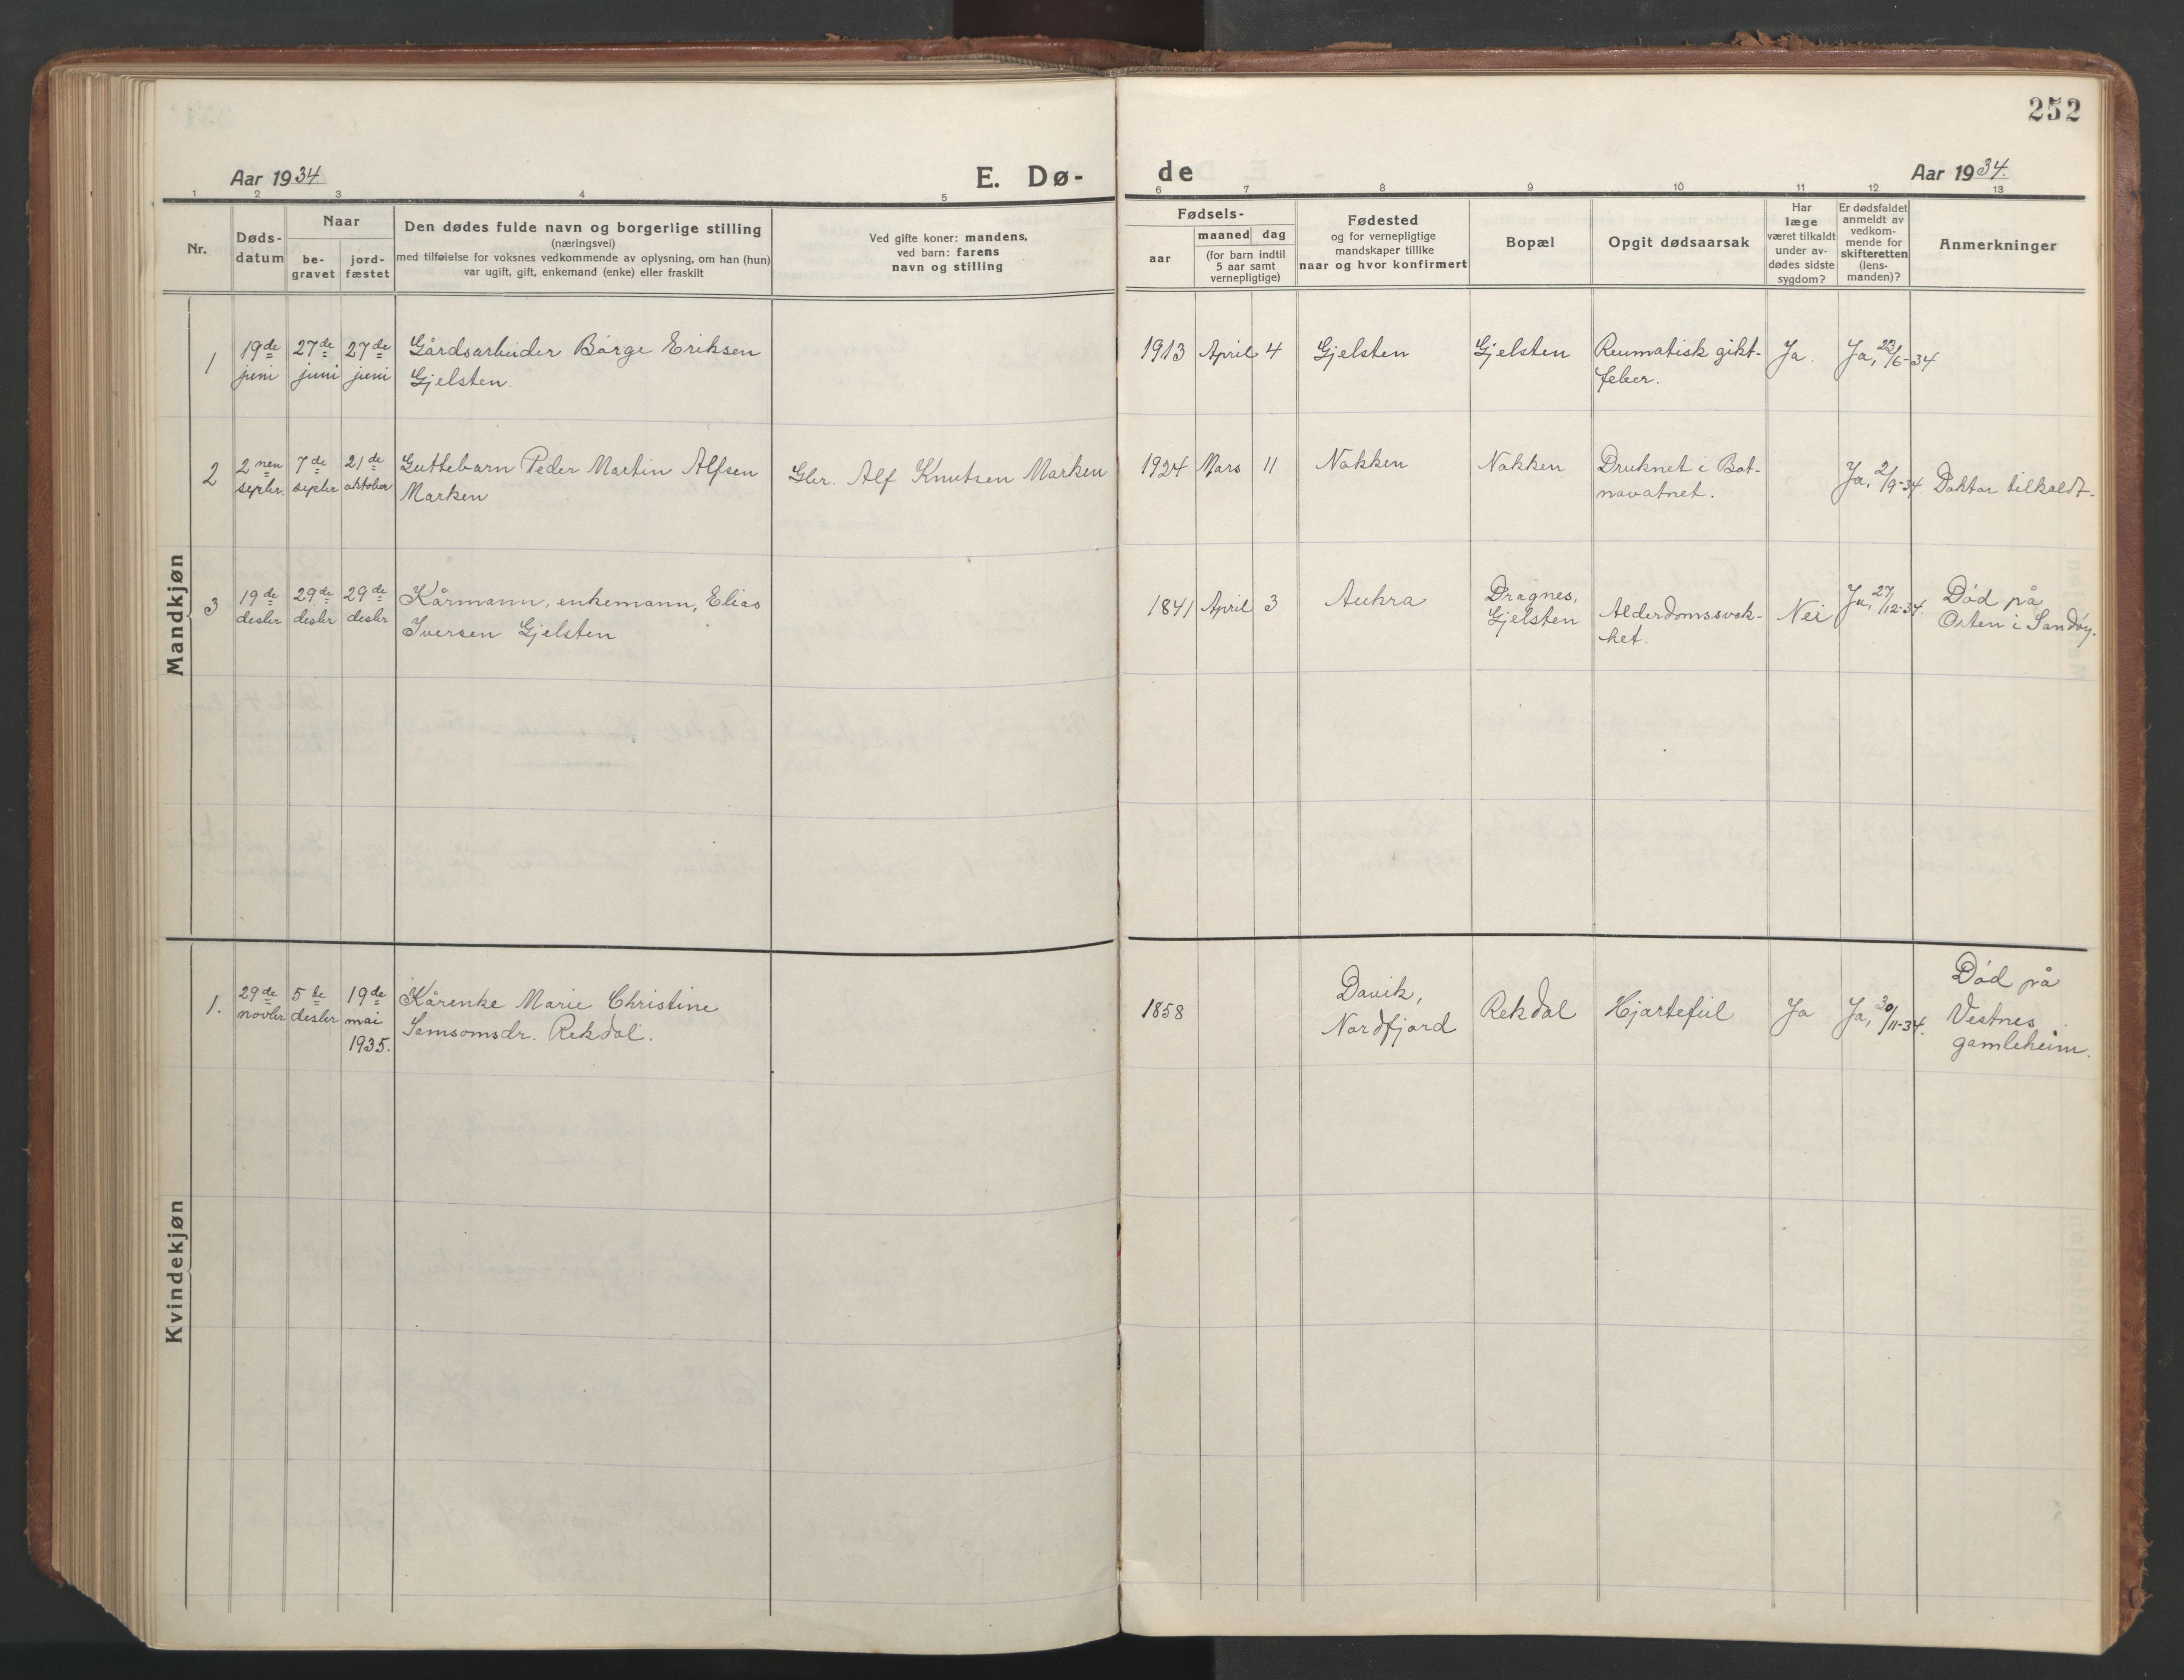 252
Aar 1934
E. Dø-
de
Aar 1934.
1 2 3 4 5 6 7 8 9 10 11 12 13
Nr.
Døds-
datum
Naar
be-
gravet
jord-
fæstet
Den dødes fulde navn og borgerlige stilling
(næringsvei)
med tilføielse for voksnes vedkommende av oplysning, om han (hun)
var ugift, gift, enkemand (enke) eller fraskilt
Ved gifte koner: mandens,
ved barn: farens
navn og stilling
Fødsels-
aar
maaned dag
(for barn indtil
5 aar samt
vernepligtige)
Fødested
og for vernepligtige
mandskaper tillike
naar og hvor konfirmert
Bopæl
Opgit dødsaarsak
Har
læge
været tilkaldt
under av-
dødes sidste
sygdom?
Er dødsfaldet
anmeldt av
vedkom-
mende for
skifteretten
(lens-
manden)?
Anmerkninger
Mandkjøn
1
19de
juni
27de
juni
27de
juni
Gårdsarbeider Børge Eriksen
Gjelsten.
1913 April 4
Gjelsten
Gjelsten
Reumatisk gikt-
feber.
Ja.
Ja, 23/6-34
2
2nen
septbr.
7de
septbr
21de
oktober
Guttebarn Peder Martin Alfsen
Marken
Gbr. Alf Knutsen Marken
1924 Mars 11
Nakken
Nakken
Druknet i Bot-
navatnet.
Ja, 2/9-34
Doktor tilkaldt.
3
19de
desbr
29de
desbr
29de
desbr
Kårmann, enkemann, Elias
Iversen Gjelsten
1841 April 3
Aukra
Dragnes,
Gjelsten
Alderdomssvak-
het.
Nei
Ja, 27/12-34.
Død på
Orten i Sandøy.
Kvindekjøn
1.
29de
novbr
5te
desbr
19de
mai
1935.
Kårenke Marie Christine
Samsomsdr. Rekdal.
1858
Davik,
Nordfjord
Rekdal
Hjartefeil
Ja
Ja, 30/11-34.
Død på
Vestnes
gamleheim.